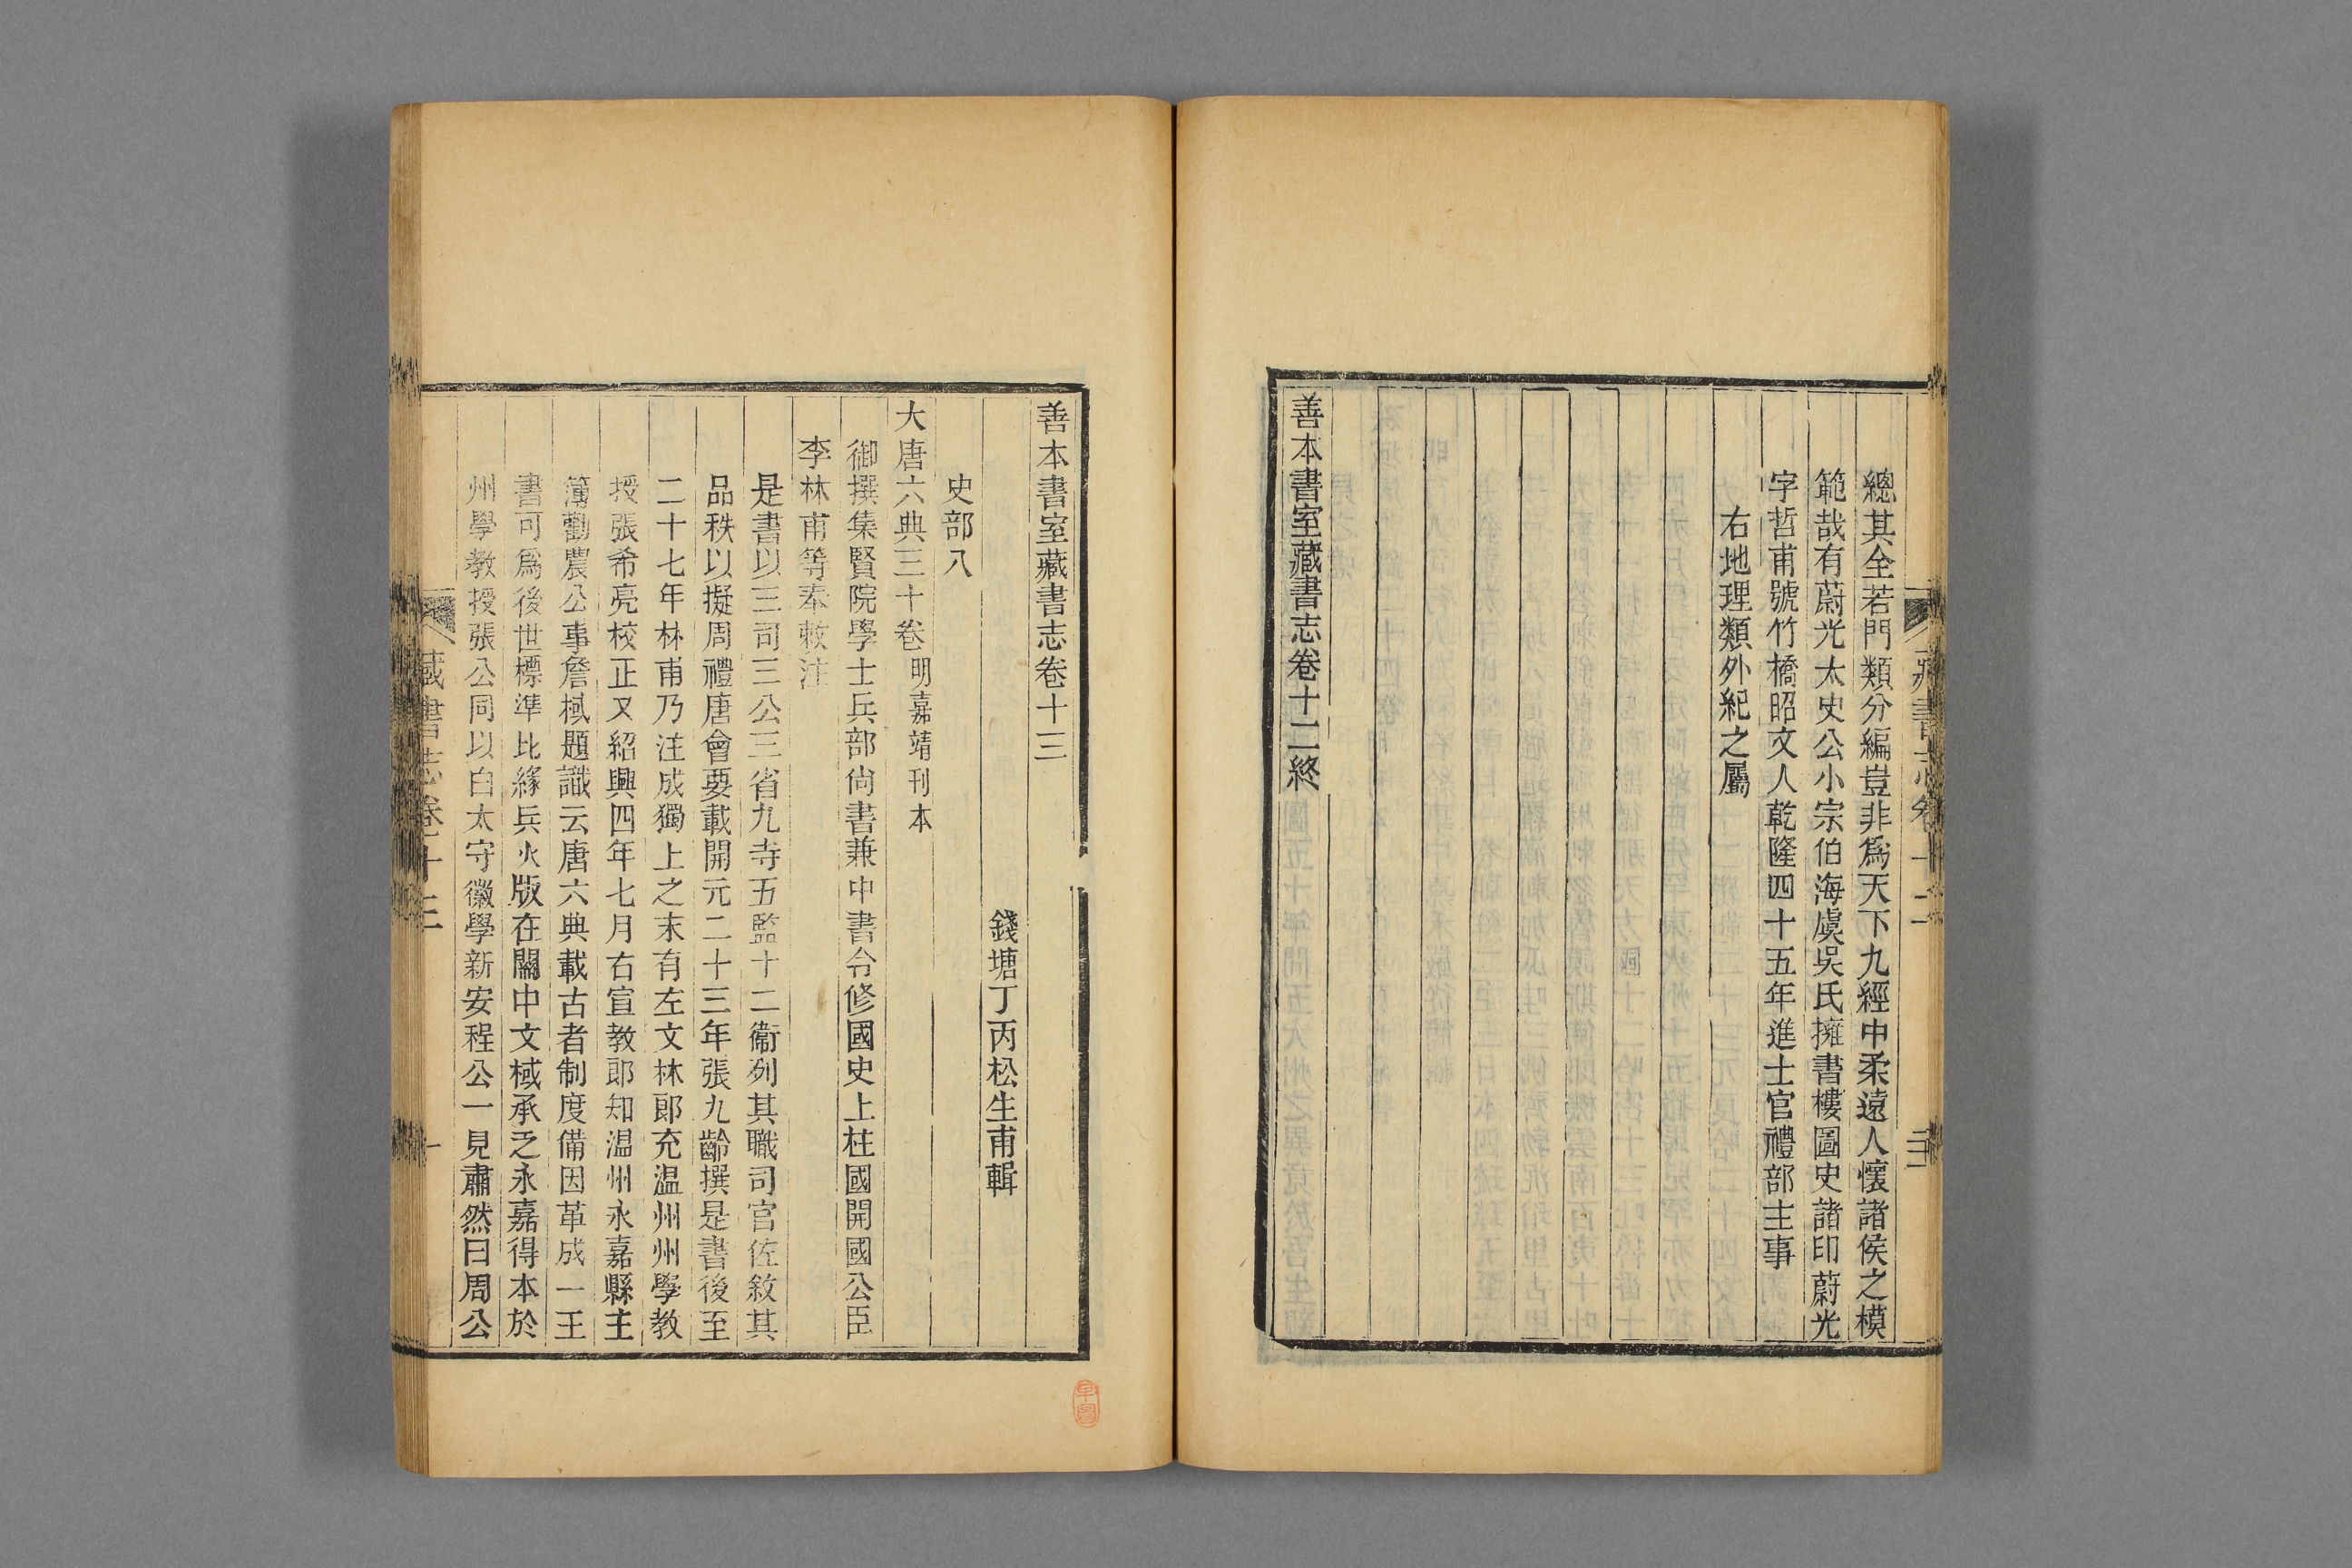 總其全若門類分編豈非爲天下九經中柔遠人懷諸侯之模
範哉有蔚光太史公小宗伯海虞吳氏擁書樓圖史諸印蔚光
字哲甫號竹橋昭文人乾隆四十五年進士官禮部主事
右地理類外紀之屬
善本書室藏書志卷十二終
善本書室藏書志卷十三
錢塘丁丙松生甫輯
史部八
大唐六典三十卷 明嘉靖刊本
御撰集賢院學士兵部尙書兼中書令修國史上柱國開國公臣
李林甫等奉敕注
是書以三司三公三省九寺五監十二衞列其職司官佐敘其
品秩以擬周禮唐會要載開元二十三年張九齡撰是書後至
二十七年林甫乃注成獨上之末有左文林郞充温州州學教
授張希亮校正又紹興四年七月右宣教郞知温州永嘉縣主
簿勸農公事詹棫題識云唐六典載古者制度備因革成一王
書可爲後世標準比緣兵火版在闕中文棫承乏永嘉得本於
州學教授張公同以白太守徽學新安程公一見肅然曰周公
藏書志卷十三
一